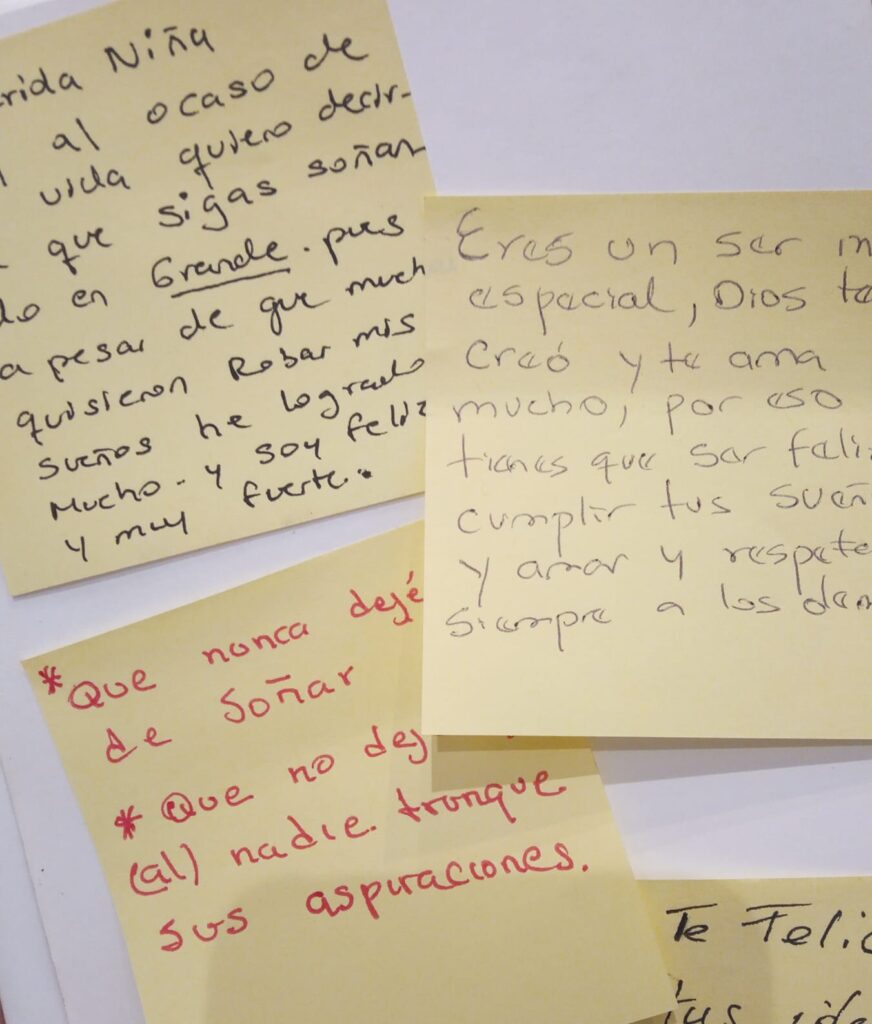 rida Niña
al ocaso de
vida quiero decir-
que sigas soñan
do en Grande. pues
a pesar de que much
quisieron Robar mis
sueños he logrado
Mucho- y soy feliz
y muy fuerte.
Eres un ser m
especial, Dios te
creó y te ama
mucho, por eso
tienes que ser feliz
cumplir tus sueñ
y amar y respete
siempre a los dem
*Que nunca dejé
de soñar
*Que no dej
(al) nadie trunque
sus aspiraciones.
Te Felic
tus ide